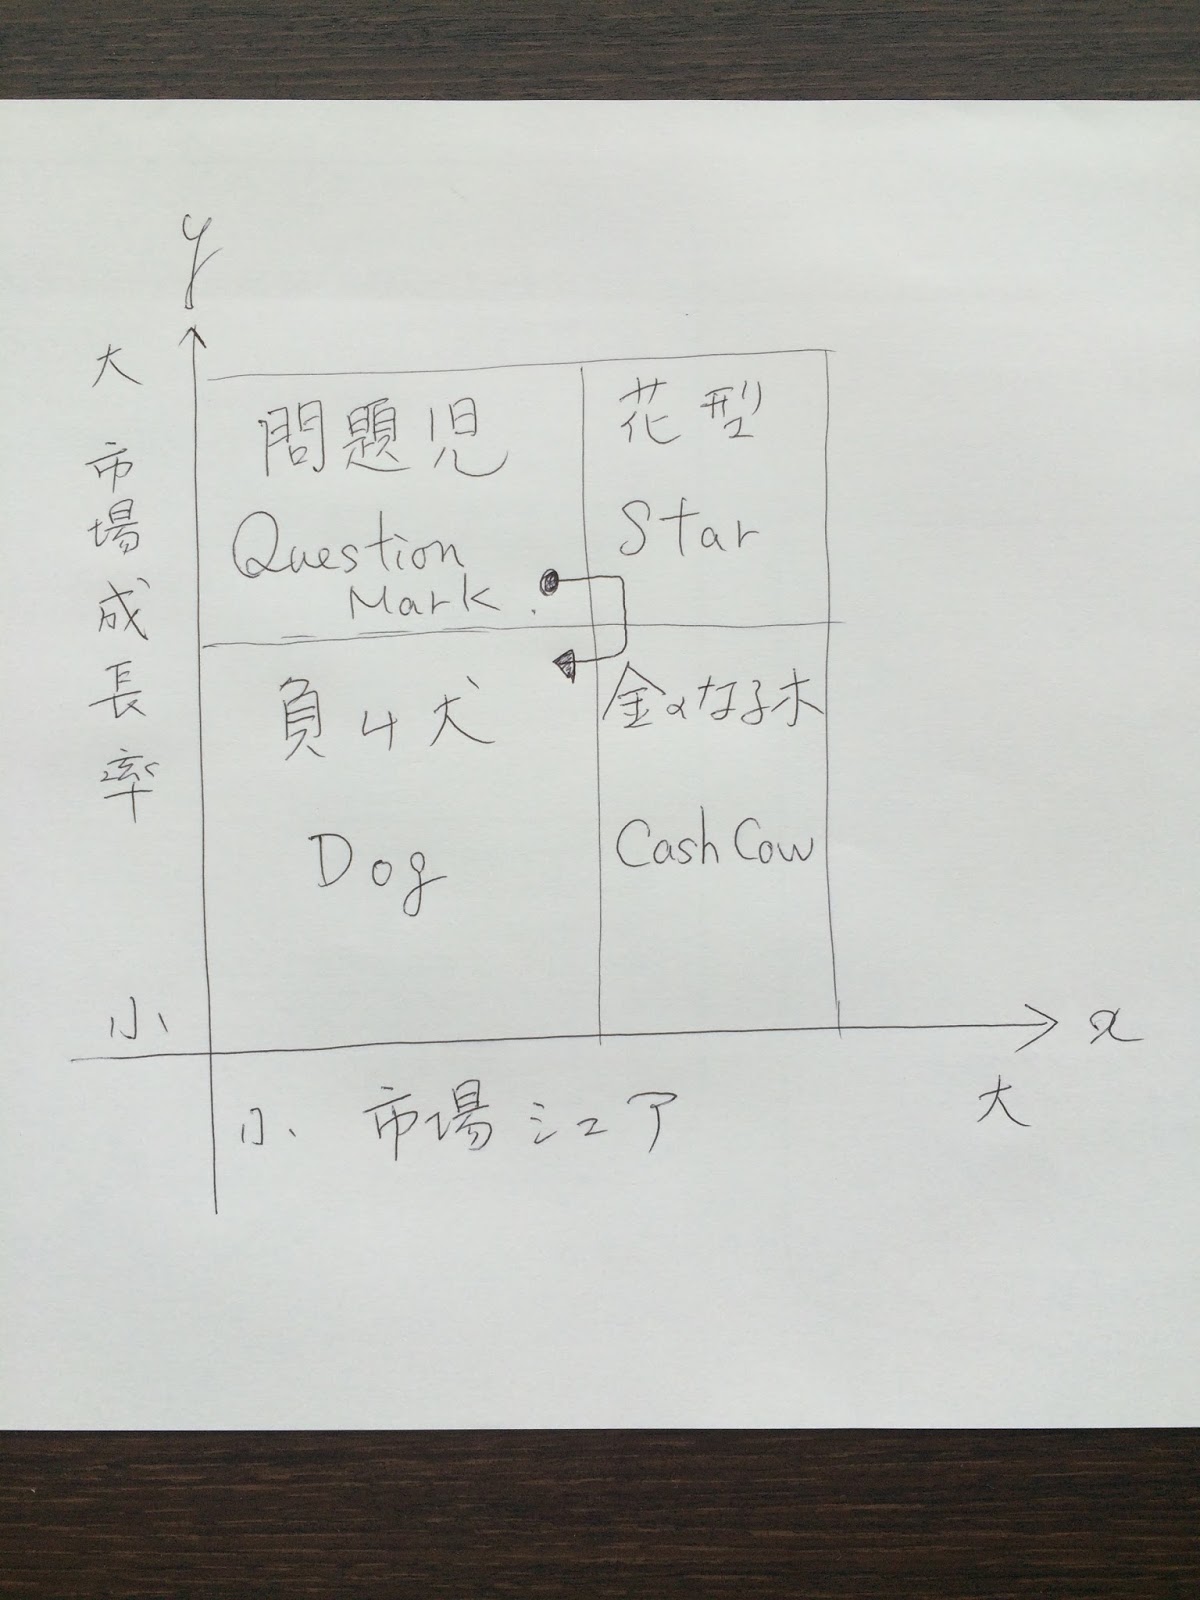 y
大
市場成長率
小
問題児
Question
Mark
花型
Star
負け犬
Dog
金のなる木
Cash Cow
x
小 市場シェア 大